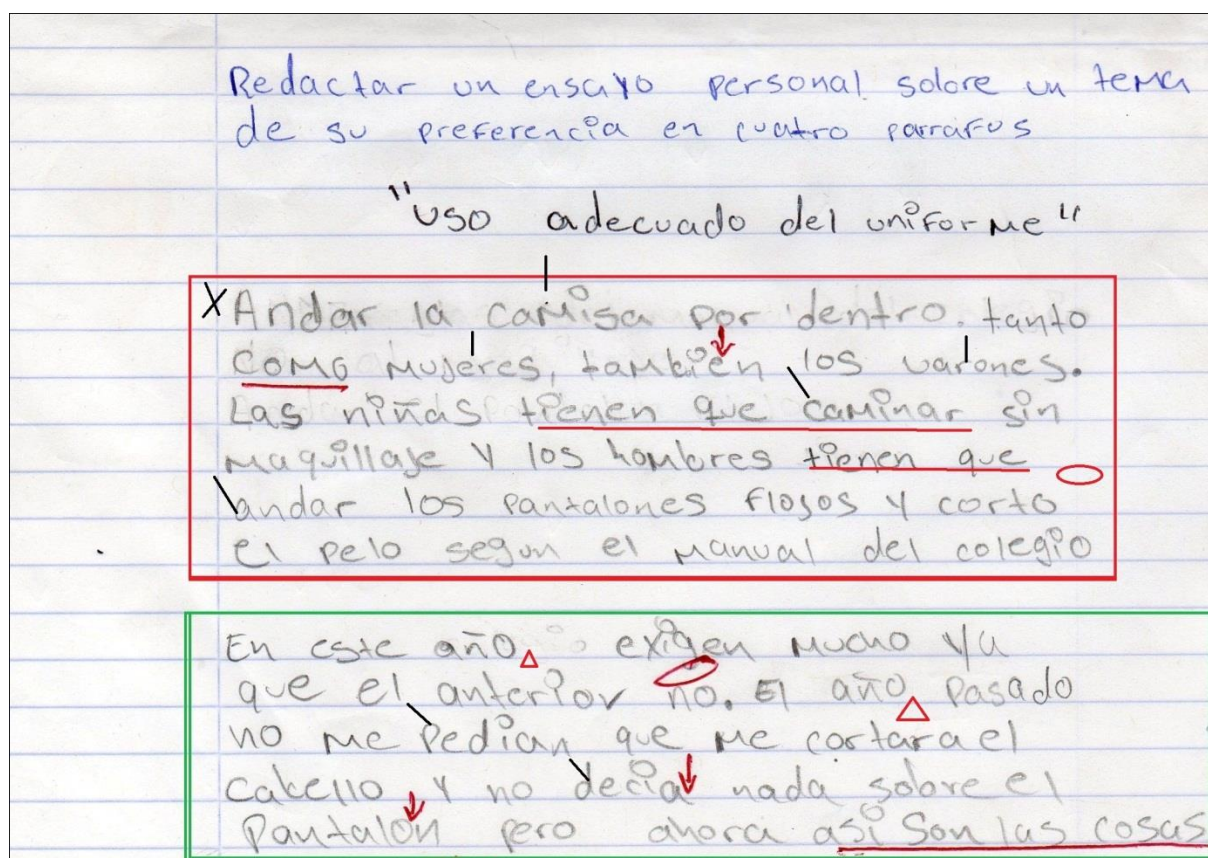 Redactar un ensayo personal sobre un tema
de su preferencia en cuatro parrafos
"uso adecuado del uniforme"
X Andar la camisa por dentro. tanto
como mujeres, también los varones.
Las niñas tienen que caminar sin
maquillaje y los hombres tienen que
andar los pantalones flojos y corto
el pelo segun el manual del colegio
En este año exigen mucho ya
que el anterior no. El año pasado
no me pedian que me cortara el
cabello y no decia nada sobre el
Pantalon pero ahora asi son las cosas